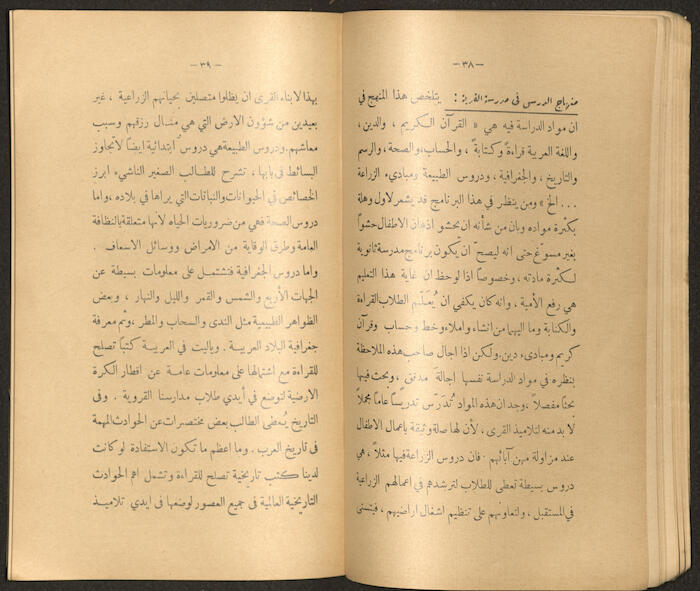 — ٣٨ —
منهاج الدرس في مدرسة القرية : يتلخص هذا المنهج في
ان مواد الدراسة فيه هي « القرآن الكريم ، والدين ،
واللغة العربية قراءةً وكتابةً ، والحساب ، والصحة ، والرسم
والتاريخ ، والجغرافية ، ودروس الطبيعة ومبادىء الزراعة
... الخ » ومن ينظر في هذا البرنامج قد يشعر لاول وهلة
بكثرة مواده وبان من شأنه ان يحشو اذهان الاطفال حشواً
بغير مسوّغ حتى انه ليصحّ ان يكون برنامج مدرسة ثانوية
لكثرة مادته ، وخصوصاً اذا لوحظ ان غاية هذا التعليم
هي رفع الأمية ، وانه كان يكفي ان يُعَلّم الطلاب القراءة
والكتابة وما اليهما من انشاء واملاء وخط وحساب وقرآن
كريم ومبادىء دين . ولكن اذا اجال صاحب هذه الملاحظة
بنظره في مواد الدراسة نفسها اجالة مدقق ، وبحث فيها
بحثاً مفصلاً ، وجد ان هذه المواد تُدَرَّس تدريساً عاماً مجملاً
لا بد منه لتلاميذ القرى ، لأن لها صلة وثيقة باعمال الاطفال
عند مزاولة مهن آبائهم . فان دروس الزراعة فيها مثلاً ، هي
دروس بسيطة تعطى للطلاب لترشدهم في اعمالهم الزراعية
في المستقبل ، ولتعاونهم على تنظيم اشغال اراضيهم ، فيتسنى
— ٣٩ —
بهذا لابناء القرى ان يظلوا متصلين بحياتهم الزراعية ، غير
بعيدين من شؤون الارض التي هي مثال رزقهم وسبب
معاشهم . ودروس الطبيعة هي دروس ابتدائية ايضاً لا تجاوز
البسائط في بابها ، تشرح للطالب الصغير الناشيء ابرز
الخصائص في الحيوانات والنباتات التي يراها في بلاده ، واما
دروس الصحة فهي من ضروريات الحياه لانها متعلقة بالنظافة
العامة وطرق الوقاية من الامراض ووسائل الاسعاف .
واما دروس الجغرافية فتشتمل على معلومات بسيطة عن
الجهات الأربع والشمس والقمر والليل والنهار ، وبعض
الظواهر الطبيعية مثل الندى والسحاب والمطر ، وثم معرفة
جغرافية البلاد العربية . وياليت في العربية كتباً تصلح
للقراءة مع اشتمالها على معلومات عامة عن اقطار الكرة
الارضية لتوضع في أيدي طلاب مدارسنا القروية . وفي
التاريخ يُعطى الطالب بعض مختصرات عن الحوادث المهمة
في تاريخ العرب . وما اعظم ما تكون الاستفادة لو كانت
لدينا كتب تاريخية تصلح للقراءة وتشمل اهم الحوادث
التاريخية العالمية في جميع العصور لوضعها في ايدي تلاميذ